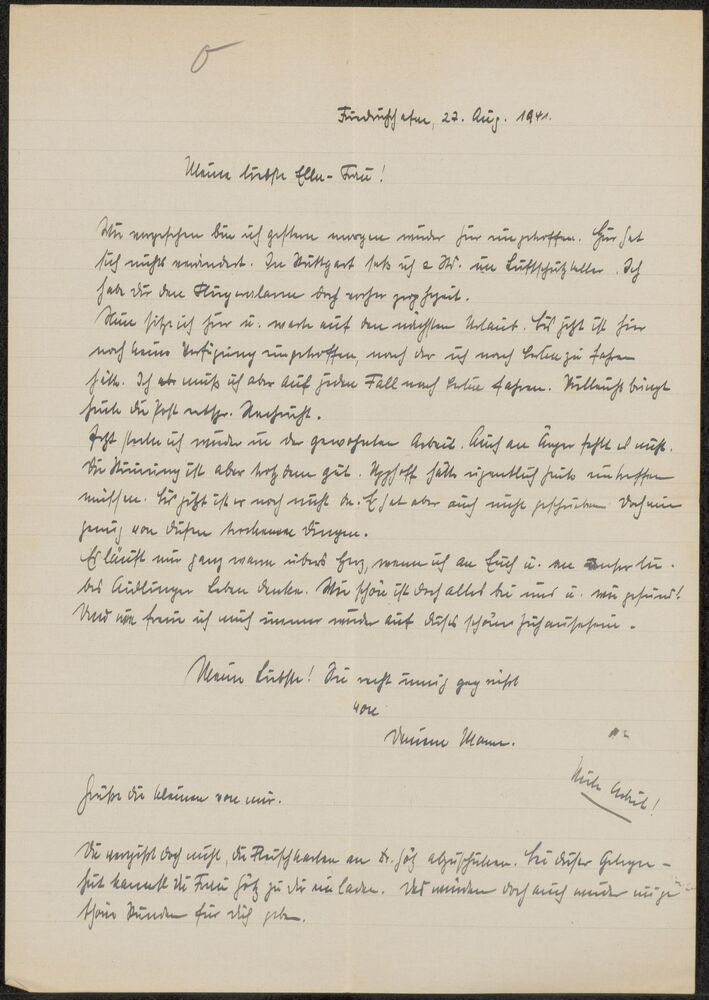 Friedrichshafen, 22. Aug. 1941.
Meine liebste Elle-Frau!
Wie vorgesehen bin ich gestern morgen wieder hier eingetroffen. Hier hat
sich nichts verändert. In Stuttgart saß ich 2 Std. im Luftschutzkeller. Ich
habe dir den Fliegeralarm doch vorher prophezeit.
Nun sitze ich hier u. warte auf den nächsten Urlaub. Bis jetzt ist hier
noch keine Verfügung eingetroffen, nach der ich nach Berlin zu fahren
hätte. Ich muß ich aber auf jeden Fall nach Berlin fahren. Vielleicht bringt
heute die Post entspr. Nachricht.
Jetzt stecke ich wieder in der gewohnten Arbeit. Auch an Ärger fehlt es nicht.
Die Stimmung ist aber trotzdem gut. hätte eigentlich heute eintreffen
müssen. Bis jetzt ist er noch nicht da. Er hat aber auch nicht geschrieben. Doch nun
genug von diesen trockenen Dingen.
Es läuft mir ganz warm übers Herz, wenn ich an Euch u. an unser lie-
bes Aidlinger Leben denke. Wie schön ist doch alles bei uns u. wie gesund!
Und wie freue ich mich immer wieder auf dieses schöne Zuhausesein.
Meine Liebste! Sei recht innig gegrüßt
von
Deinem Mann.
Viele Arbeit!
Grüße die Kleinen von mir.
Du vergißt doch nicht, die Fleischkarten an Dr. Götz abzuschicken. Bei dieser Gelegen-
heit kannst du Frau Götz zu dir einladen. Das würden doch auch wieder einige
schöne Stunden für dich geben.